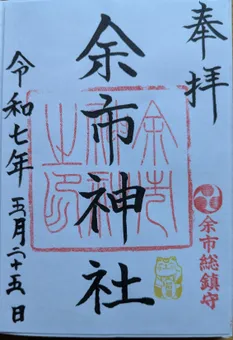 奉拝
余市総鎮守
余市神社
令和七年五月二十五日